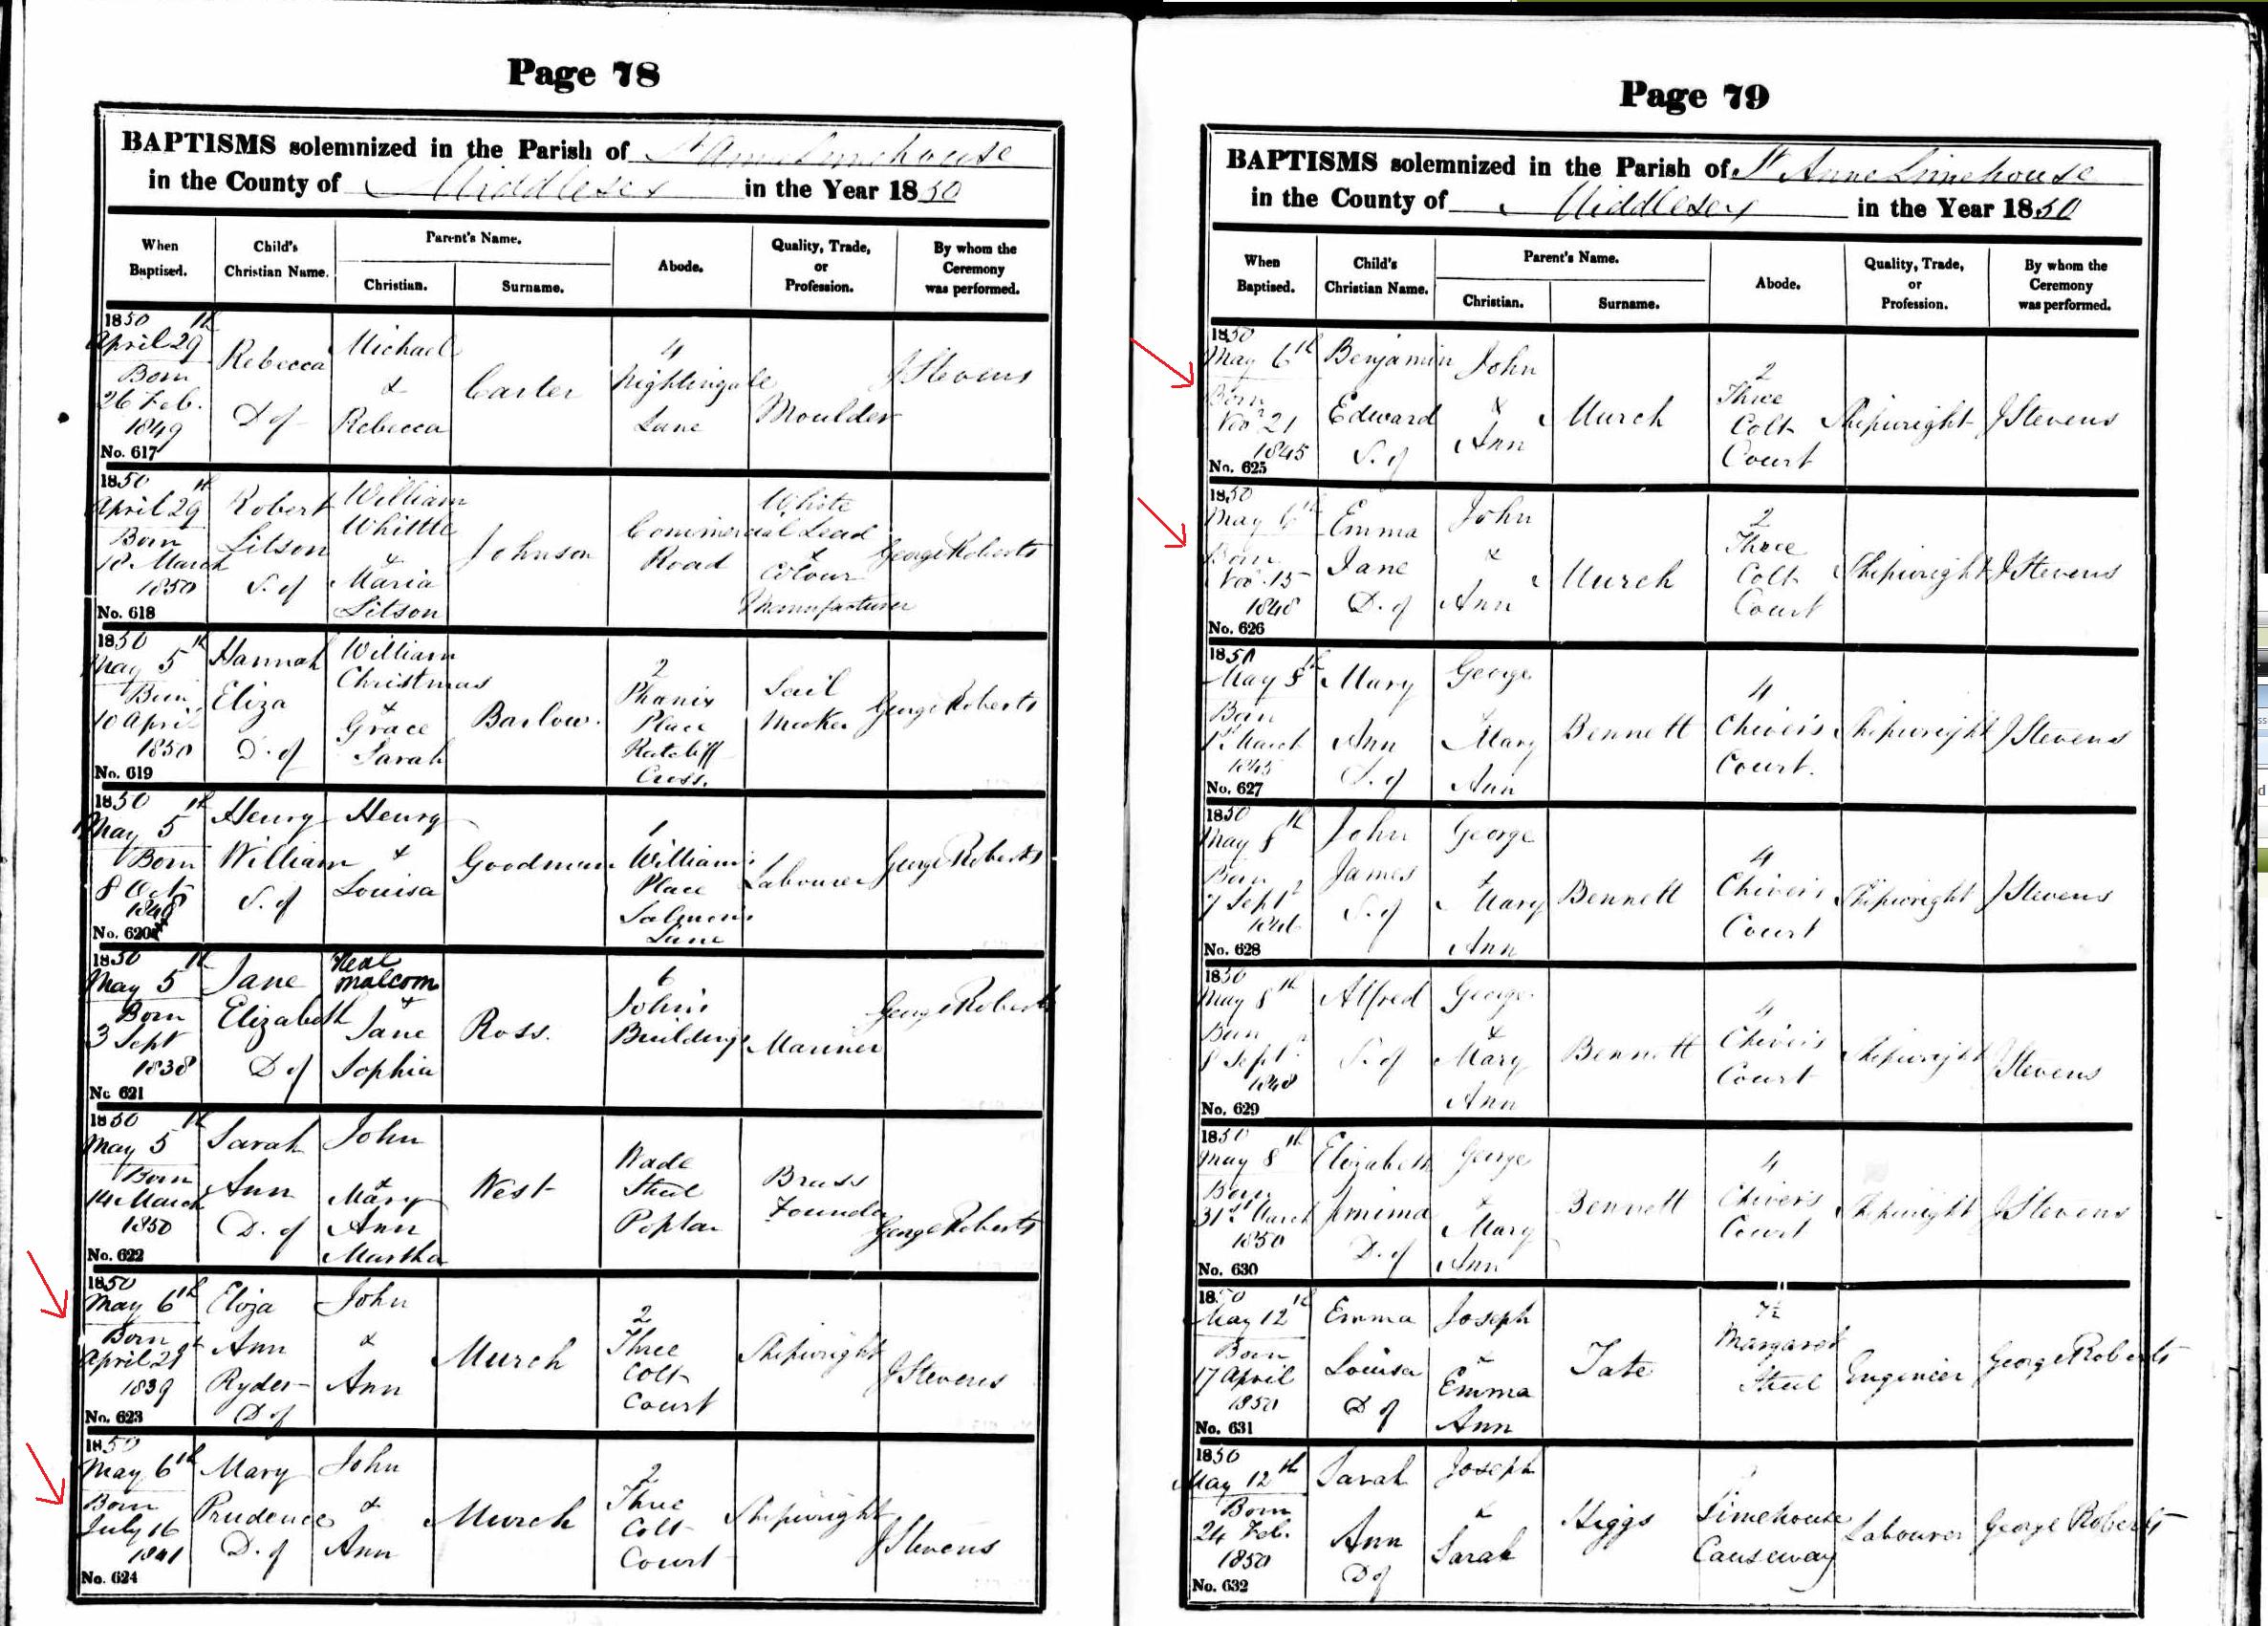 Page 78
BAPTISMS solemnized in the Parish of St Anne Limehouse
in the County of Middlesex in the Year 1850
When Baptised.
Child's Christian Name.
Parent's Name.
Christian.
Surname.
Abode.
Quality, Trade, or Profession.
By whom the Ceremony was performed.
1850 April 29th Born 26 Feb. 1849 No. 617
Rebecca D of
Michael & Rebecca
Carter
4 Nightingale Lane
Moulder
J Stevens
1850 April 29th Born 18 March 1850 No. 618
Robert Litson S. of
William Whittle & Maria Litson
Johnson
Commercial Road
White Lead & Colour Manufacturer
George Roberts
1850 May 5th Born 10 April 1850 No. 619
Hannah Eliza D. of
William Christmas & Grace Sarah
Barlow.
2 Phœnix Place Ratcliff Cross.
Sail Maker
George Roberts
1850 May 5th Born 8 Oct 1848 No. 620
Henry William S. of
Henry & Louisa
Goodman
1 William's Place Salmon's Lane
Labourer
George Roberts
1850 May 5th Born 3 Sept 1838 No. 621
Jane Elizabeth D of
Neal Malcom & Jane Sophia
Ross.
6 John's Buildings
Mariner
George Roberts
1850 May 5th Born 14 March 1850 No. 622
Sarah Ann D. of
John & Mary Ann Martha
West
Wade Street Poplar
Brass Founder
George Roberts
1850 May 6th Born April 29th 1839 No. 623
Eliza Ann Ryder D of
John & Ann
Murch
2 Three Colt Court
Shipwright
J Stevens
1850 May 6th Born July 16 1841 No. 624
Mary Prudence D. of
John & Ann
Murch
2 Three Colt Court
Shipwright
J Stevens
Page 79
BAPTISMS solemnized in the Parish of St Anne Limehouse
in the County of Middlesex in the Year 1850
When Baptised.
Child's Christian Name.
Parent's Name.
Christian.
Surname.
Abode.
Quality, Trade, or Profession.
By whom the Ceremony was performed.
1850 May 6th Born Novr 21 1845 No. 625
Benjamin Edward S. of
John & Ann
Murch
2 Three Colt Court
Shipwright
J Stevens
1850 May 6th Born Novr 15 1848 No. 626
Emma Jane D. of
John & Ann
Murch
2 Three Colt Court
Shipwright
J Stevens
1850 May 8th Born 1st March 1845 No. 627
Mary Ann of
George & Mary Ann
Bennett
4 Chiver's Court.
Shipwright
J Stevens
1850 May 8th Born 7 Septr 1846 No. 628
John James S. of
George & Mary Ann
Bennett
4 Chiver's Court
Shipwright
J Stevens
1850 May 8th Born 8 Septr 1848 No. 629
Alfred S. of
George & Mary Ann
Bennett
4 Chiver's Court
Shipwright
J Stevens
1850 May 8th Born 31st March 1850 No. 630
Elizabeth Jemima D. of
George & Mary Ann
Bennett
4 Chiver's Court
Shipwright
J Stevens
1850 May 12th Born 17 April 1850 No. 631
Emma Louisa D of
Joseph & Emma Ann
Tate
Margaret Street
Engineer
George Roberts
1850 May 12th Born 24 Feb. 1850 No. 632
Sarah Ann D of
Joseph & Sarah
Higgs
Limehouse Causeway
Labourer
George Roberts